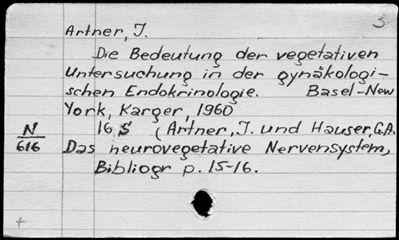 3
Artner, J.
Die Bedeutung der vegetativen
Untersuchung in der gynäkologi-
schen Endokrinologie. Basel-New
York, Karger, 1960
16 S (Artner, J. und Hauser, G.A.
N
616
Das neurovegetative Nervensystem,
Bibliogr p. 15-16.